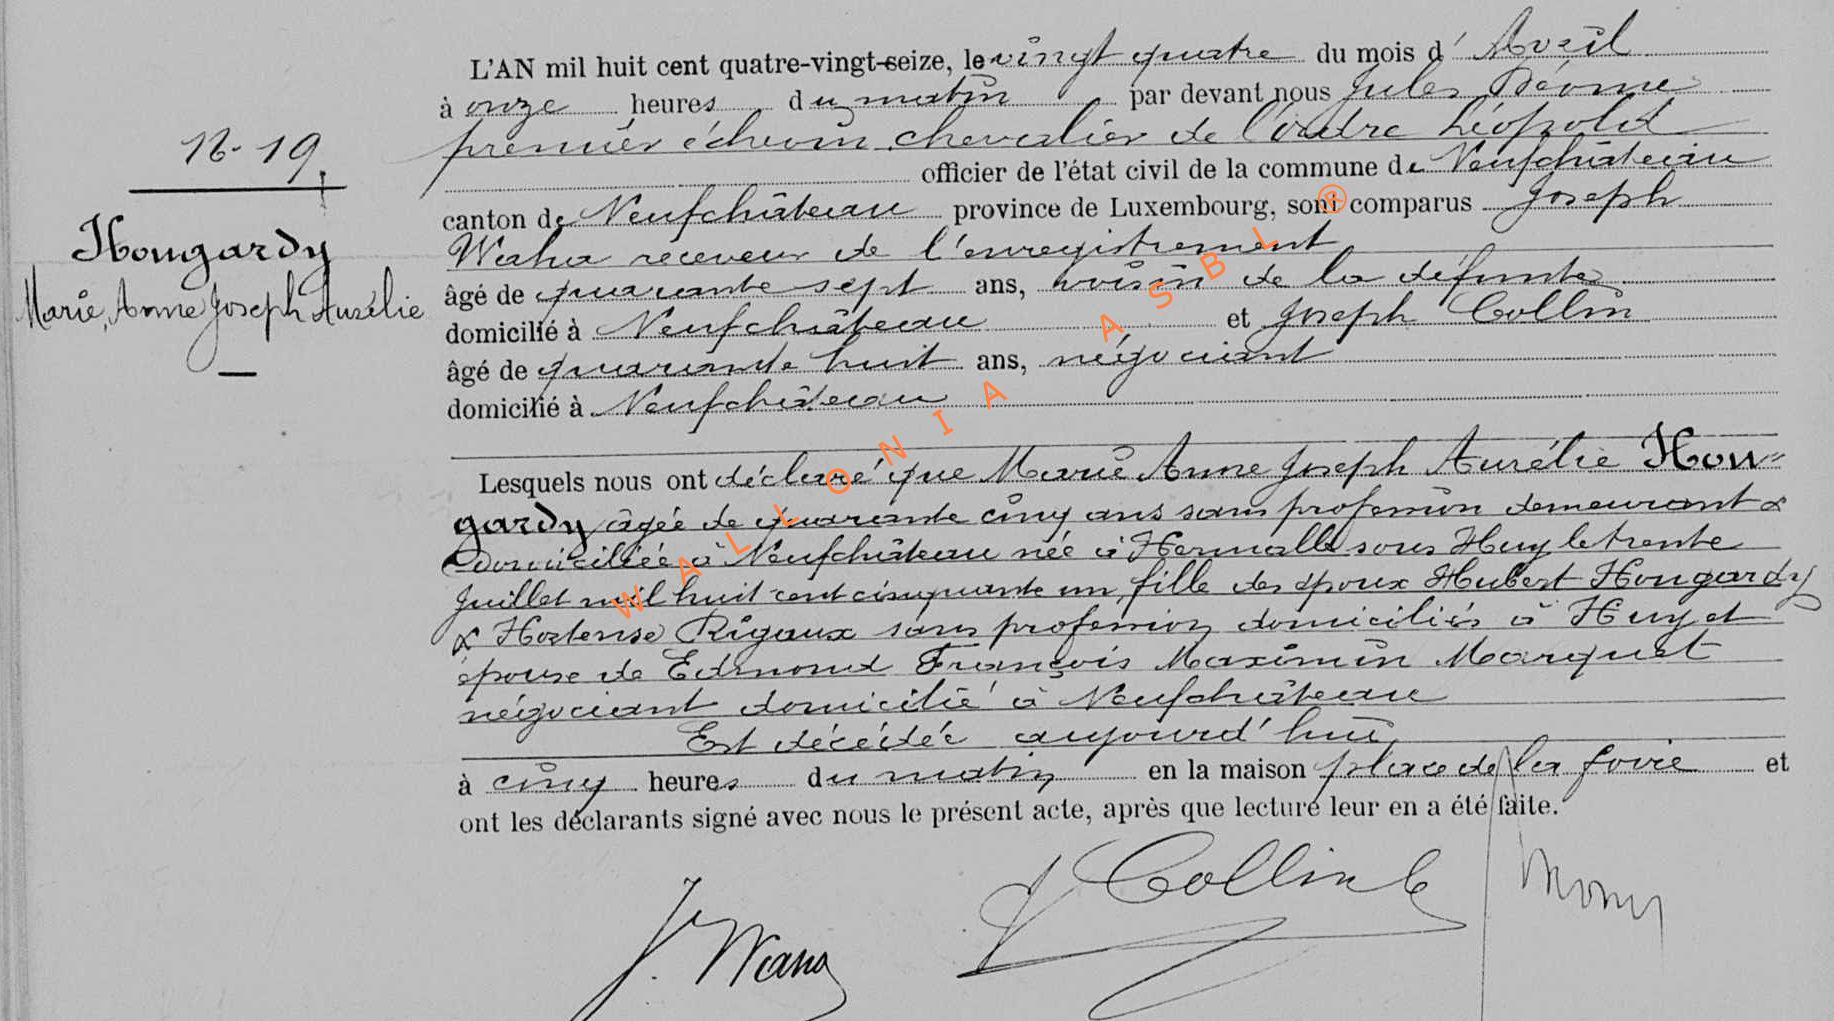 L'AN mil huit cent quatre-vingt-seize, le vingt quatre du mois d' Avril
à onze heures du matin par devant nous Jules
premier échevin chevalier de l'ordre Léopold
N-19
officier de l'état civil de la commune de Neufchâteau
canton de Neufchâteau province de Luxembourg, sont comparus Joseph
Hougardy
Marie, Anne Joseph Aurélie
Waha receveur de l'enregistrement
âgé de quarante sept ans, voisin de la défunte
domicilié à Neufchâteau et Joseph Collin
âgé de quarante huit ans, négociant
domicilié à Neufchâteau
Lesquels nous ont déclaré que Marie Anne Joseph Aurélie Hou"
gardy âgée de quarante cinq ans sans profession demeurant &
domiciliée à Neufchâteau née à Hermalle sous Huy le trente
Juillet mil huit cent cinquante un, fille des époux Hubert Hougardy
& Hortense Rigaux sans profession domiciliés à Huy et
épouse de Edmond François Maximin Marquet
négociant domicilié à Neufchâteau
Est décédée aujourd'hui
à cinq heures du matin en la maison place de la foire et
ont les déclarants signé avec nous le présent acte, après que lecture leur en a été faite.
J. Waha
J Collin
WALLONIA ASBL ®